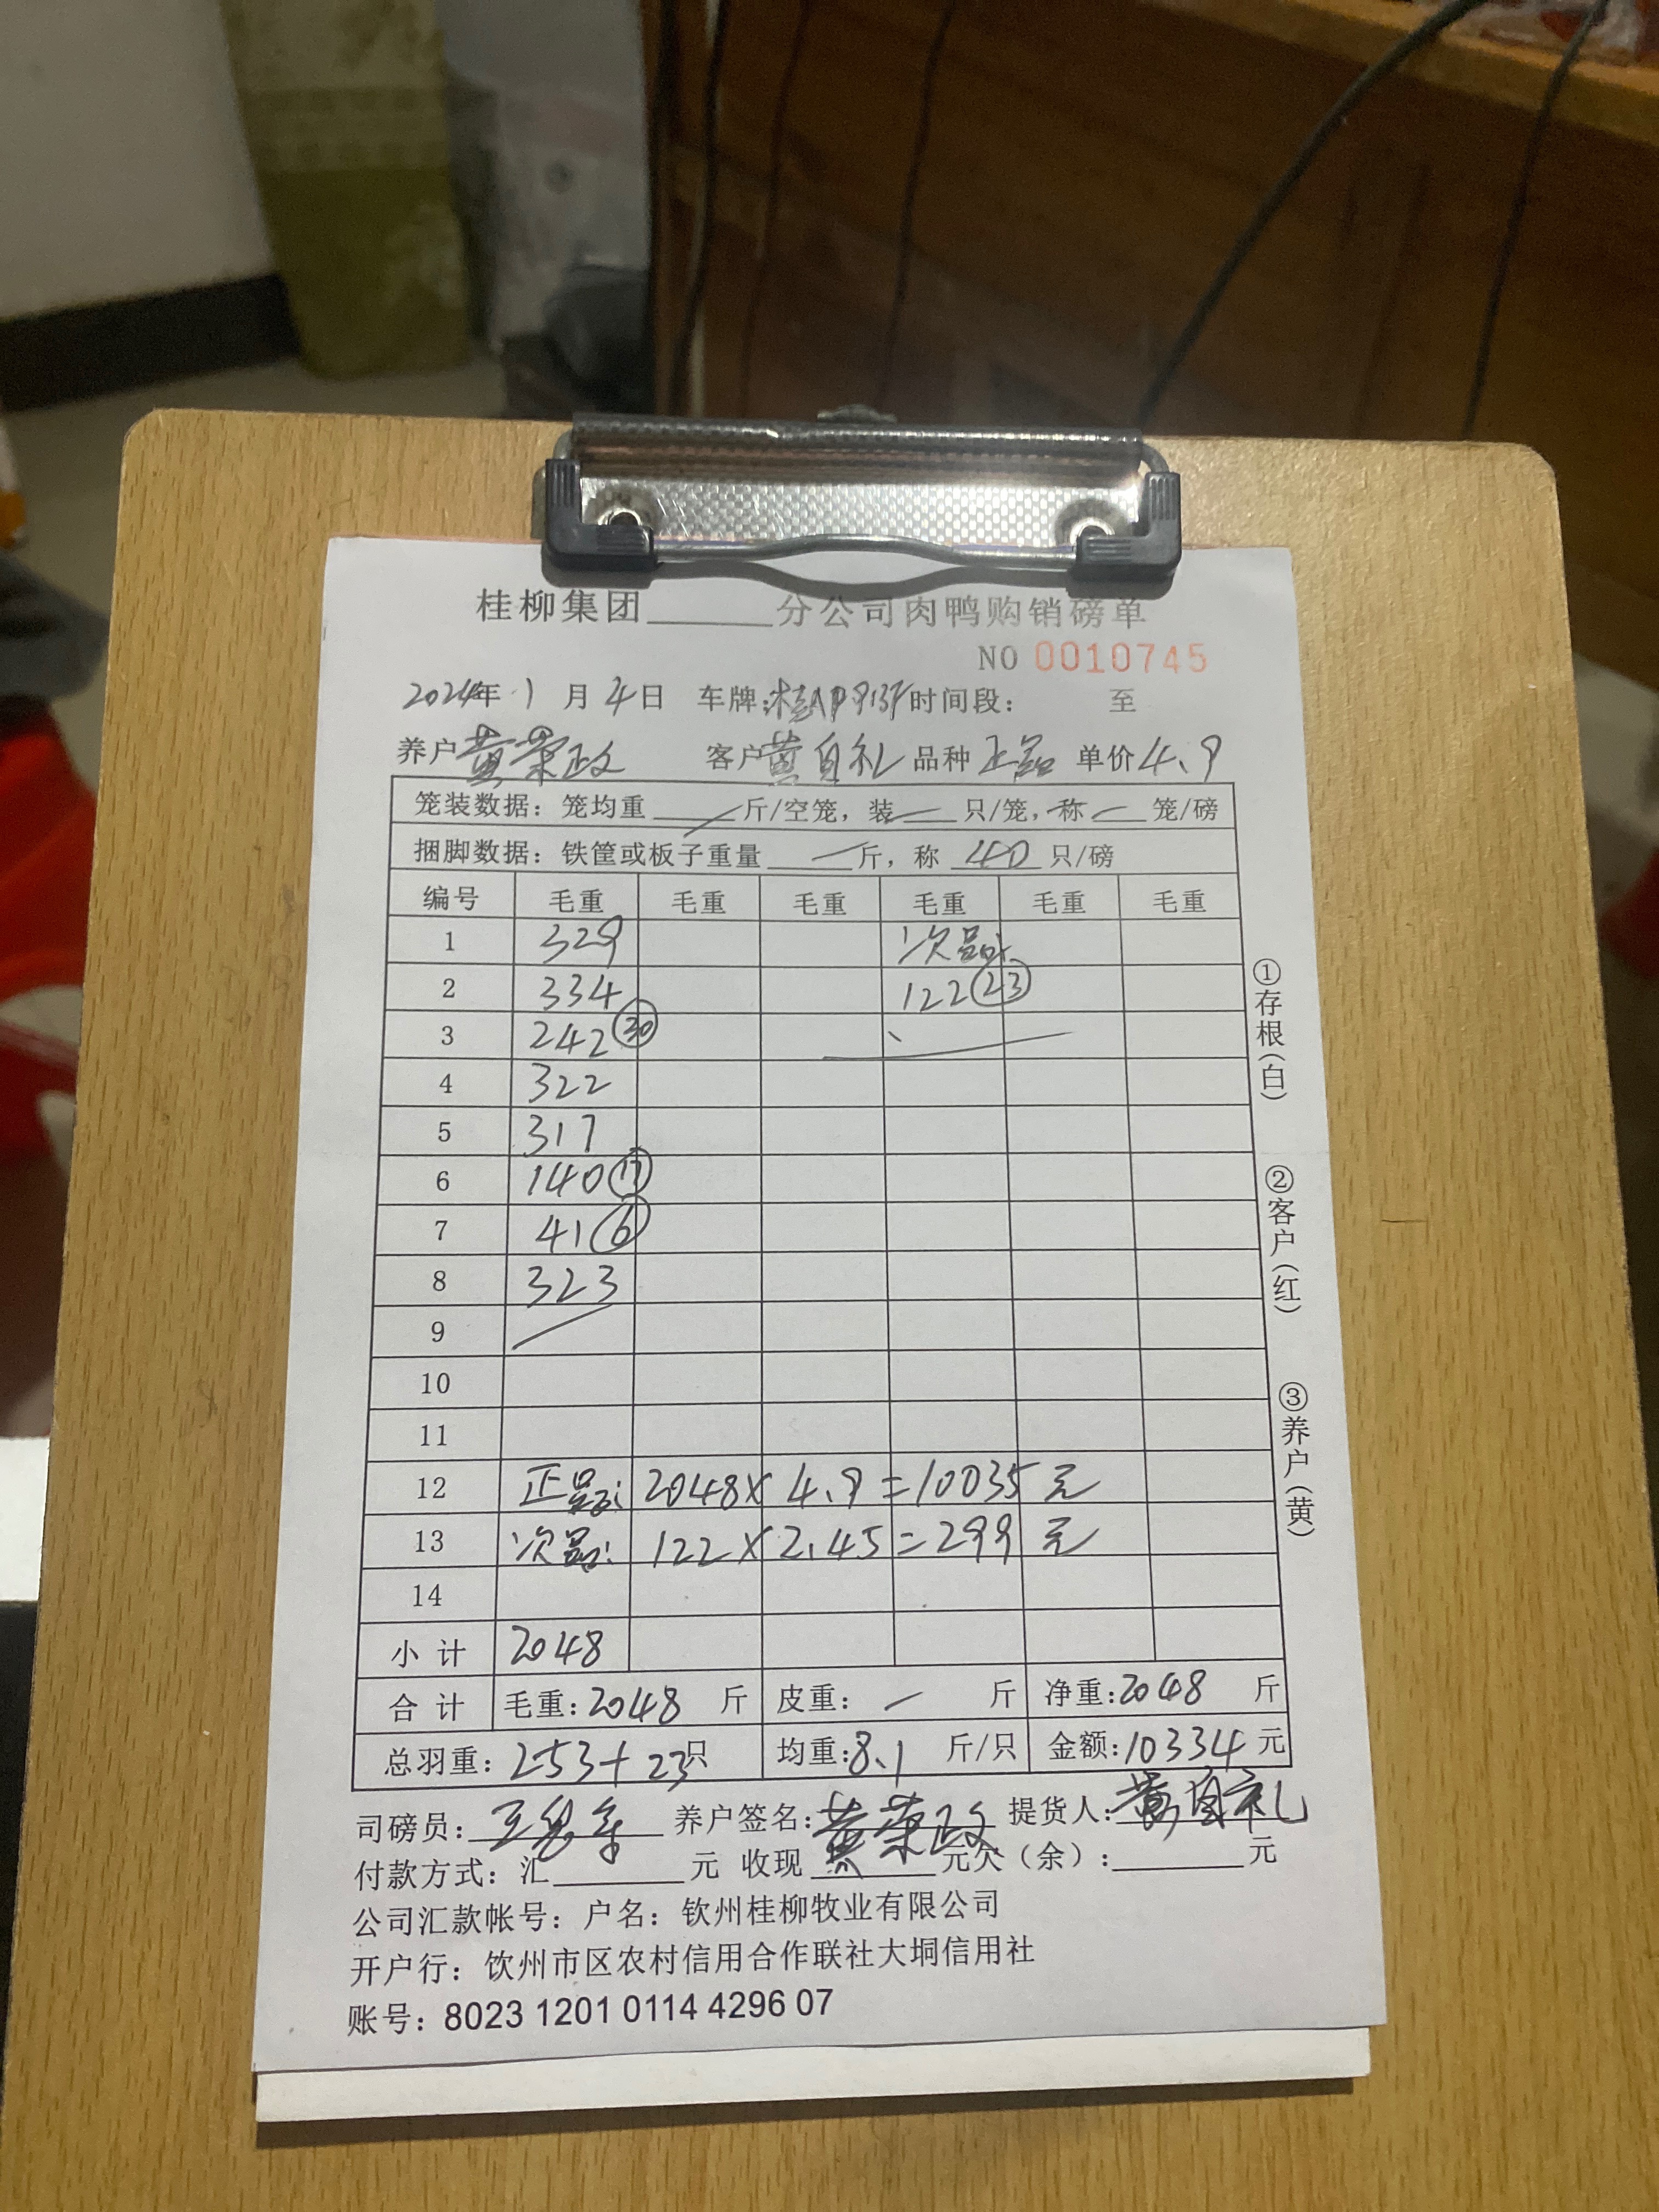 桂柳集团______分公司肉鸭购销磅单
NO 0010745
2024年 1 月 4日 车牌: 时间段: 至
养户 黄荣政 客户 黄自礼 品种 正品 单价 4.9
笼装数据: 笼均重 — 斤/空笼, 装 — 只/笼, 称 — 笼/磅
捆脚数据: 铁筐或板子重量 — 斤, 称 40 只/磅
编号 毛重 毛重 毛重 毛重 毛重 毛重
1 329 次品:
2 334 122 (23)
3 242 (30)
4 322
5 317
6 140 (17)
7 41 (6)
8 323
9
10
11
12 正品: 2048×4.9=10035元
13 次品: 122×2.45=299元
14
小计 2048
合计 毛重: 2048 斤 皮重: — 斤 净重: 2048 斤
总羽重: 253+23只 均重: 8.1 斤/只 金额: 10334 元
司磅员: 养户签名: 黄荣政 提货人: 黄自礼
付款方式: 汇______元 收现______元欠(余):______元
公司汇款帐号: 户名: 钦州桂柳牧业有限公司
开户行: 钦州市区农村信用合作联社大垌信用社
账号: 8023 1201 0114 4296 07
①存根(白)
②客户(红)
③养户(黄)